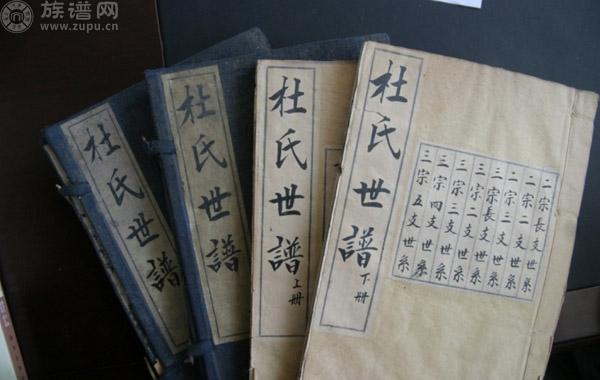 族谱网
www.zupu.cn
杜氏世譜
杜氏世譜
杜氏世譜
上册
杜氏世譜
下册
二宗長支世系
二宗二支世系
二宗三支世系
三宗長支世系
三宗二支世系
三宗三支世系
三宗四支世系
三宗五支世系